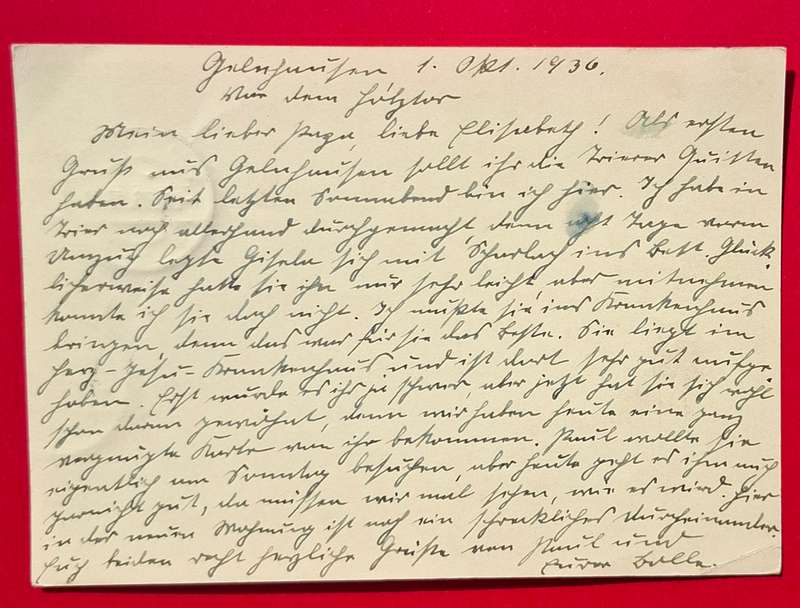 Gelnhausen 1. Okt. 1936.
Vor dem Holztor
Mein lieber Papa, liebe Elisabeth! Als ersten
Gruß aus Gelnhausen sollt ihr die Trierer Quitten
haben. Seit letzten Sonnabend bin ich hier. Ich habe in
Trier noch allerhand durchgemacht, denn acht Tage vorm
Umzug legte Gisela sich mit Scharlach ins Bett. Glück-
licherweise hatte sie ihn nur sehr leicht, aber mitnehmen
konnte ich sie doch nicht. Ich mußte sie ins Krankenhaus
bringen, denn das war für sie das Beste. Sie liegt im
Herz-Jesu-Krankenhaus und ist dort sehr gut aufge
hoben. Erst wurde es ihr ja schwer, aber jetzt hat sie sich wohl
schon daran gewöhnt, denn wir haben heute eine ganz
vergnügte Karte von ihr bekommen. Paul wollte sie
eigentlich am Sonntag besuchen, aber heute geht es ihm auch
garnicht gut, da müssen wir mal sehen, wie es wird. Hier
in der neuen Wohnung ist noch ein schreckliches Durcheinander.
Euch beiden recht herzliche Grüße von Paul und
Eurer